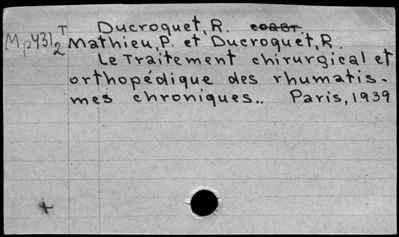 Ducroquet, R.
Mp431 T2 Mathieu, P. et Ducroquet, R.
Le Traitement chirurgical et
orthopédique des rhumatis-
mes chroniques.. Paris, 1939